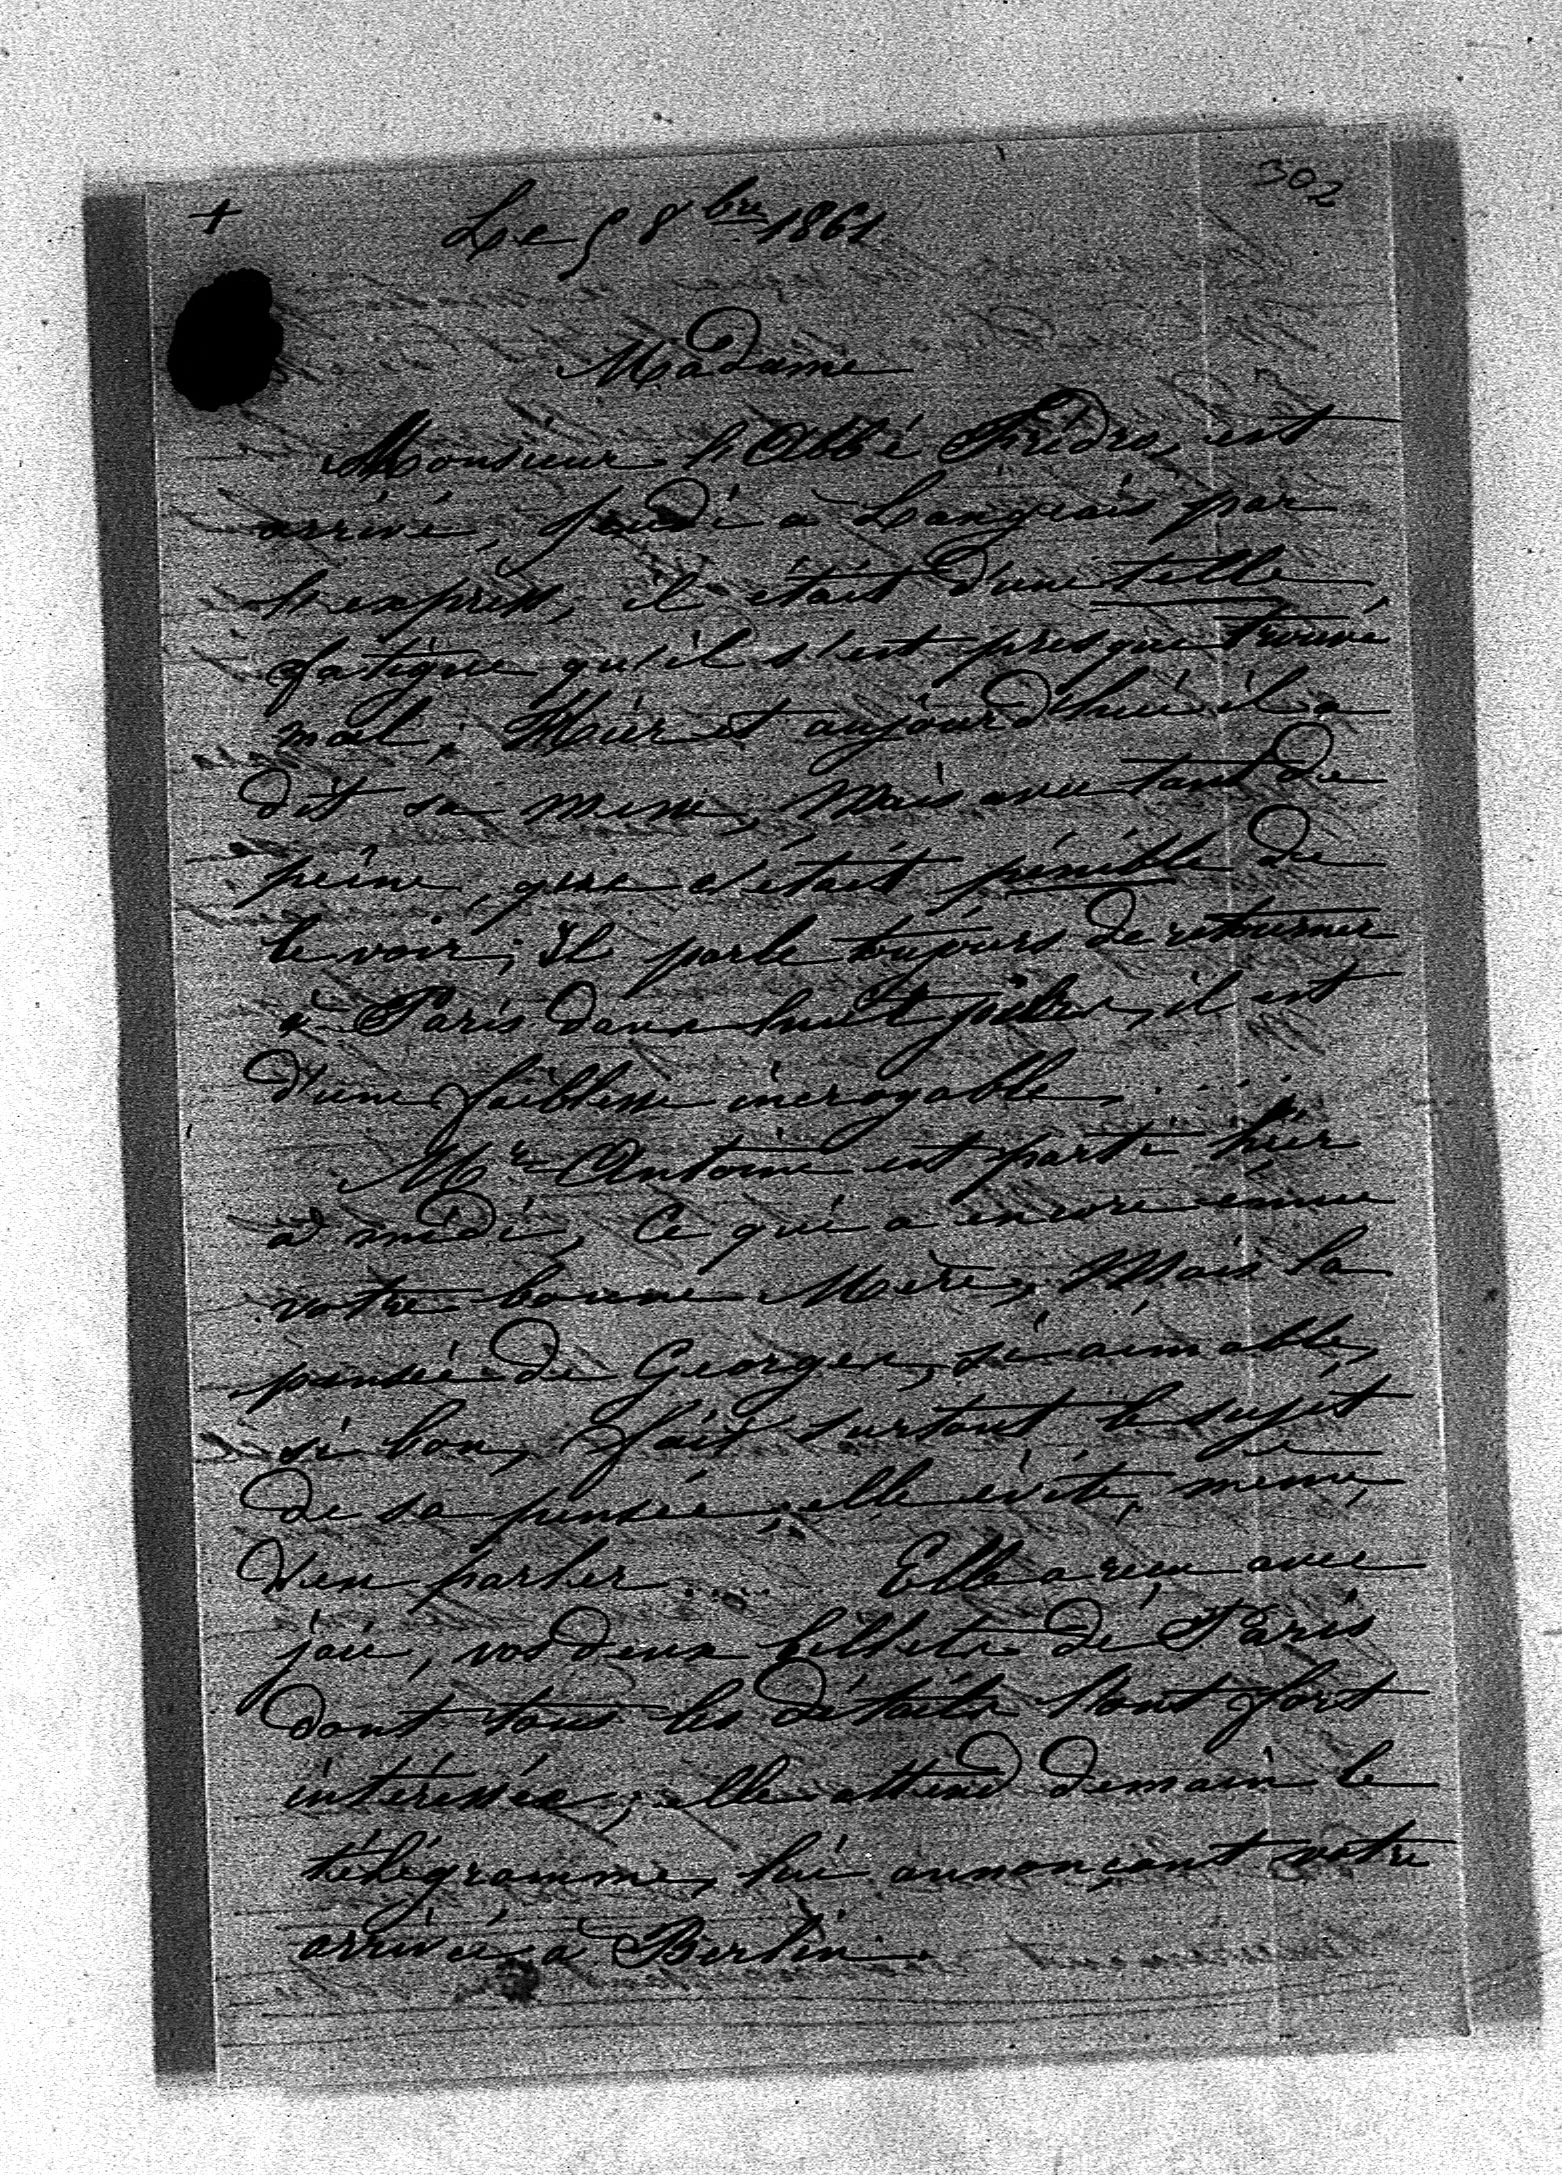 302
+
Le 5 8bre 1861
Madame
Monsieur l'Abbé est
arrivé, Jeudi à Langeais par
l'express, il était d'une telle
fatigue qu'il s'est presque trouvé
mal; Hier et aujourd'hui il a
dit sa messe, Mais avec tant de
peine, que c'était pénible de
le voir; Il parle toujours de retourner
à Paris dans huit jours, il est
d'une faiblesse incroyable.....
Mr Antoine est parti hier
à midi, Ce qui a encore émue
votre bonne Mère, Mais la
pensée de Georges, si aimable,
si bon, fait surtout le sujet
de sa pensée, elle évite, même,
d'en parler..... Elle a reçu avec
joie, vos deux billets de Paris
dont tous les détails l'ont fort
intéressée; elle attend demain le
télégramme, lui annonçant votre
arrivée à Berlin.